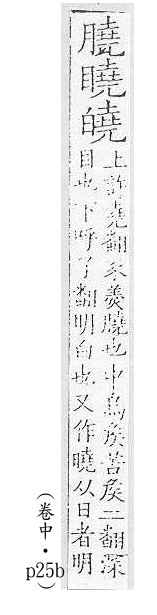 膮䁱皢
上許堯翻豕羹膮也中烏矦苦矦二翻深
目也下呼了翻明白也又作曉从日者明
（卷中・p25b）